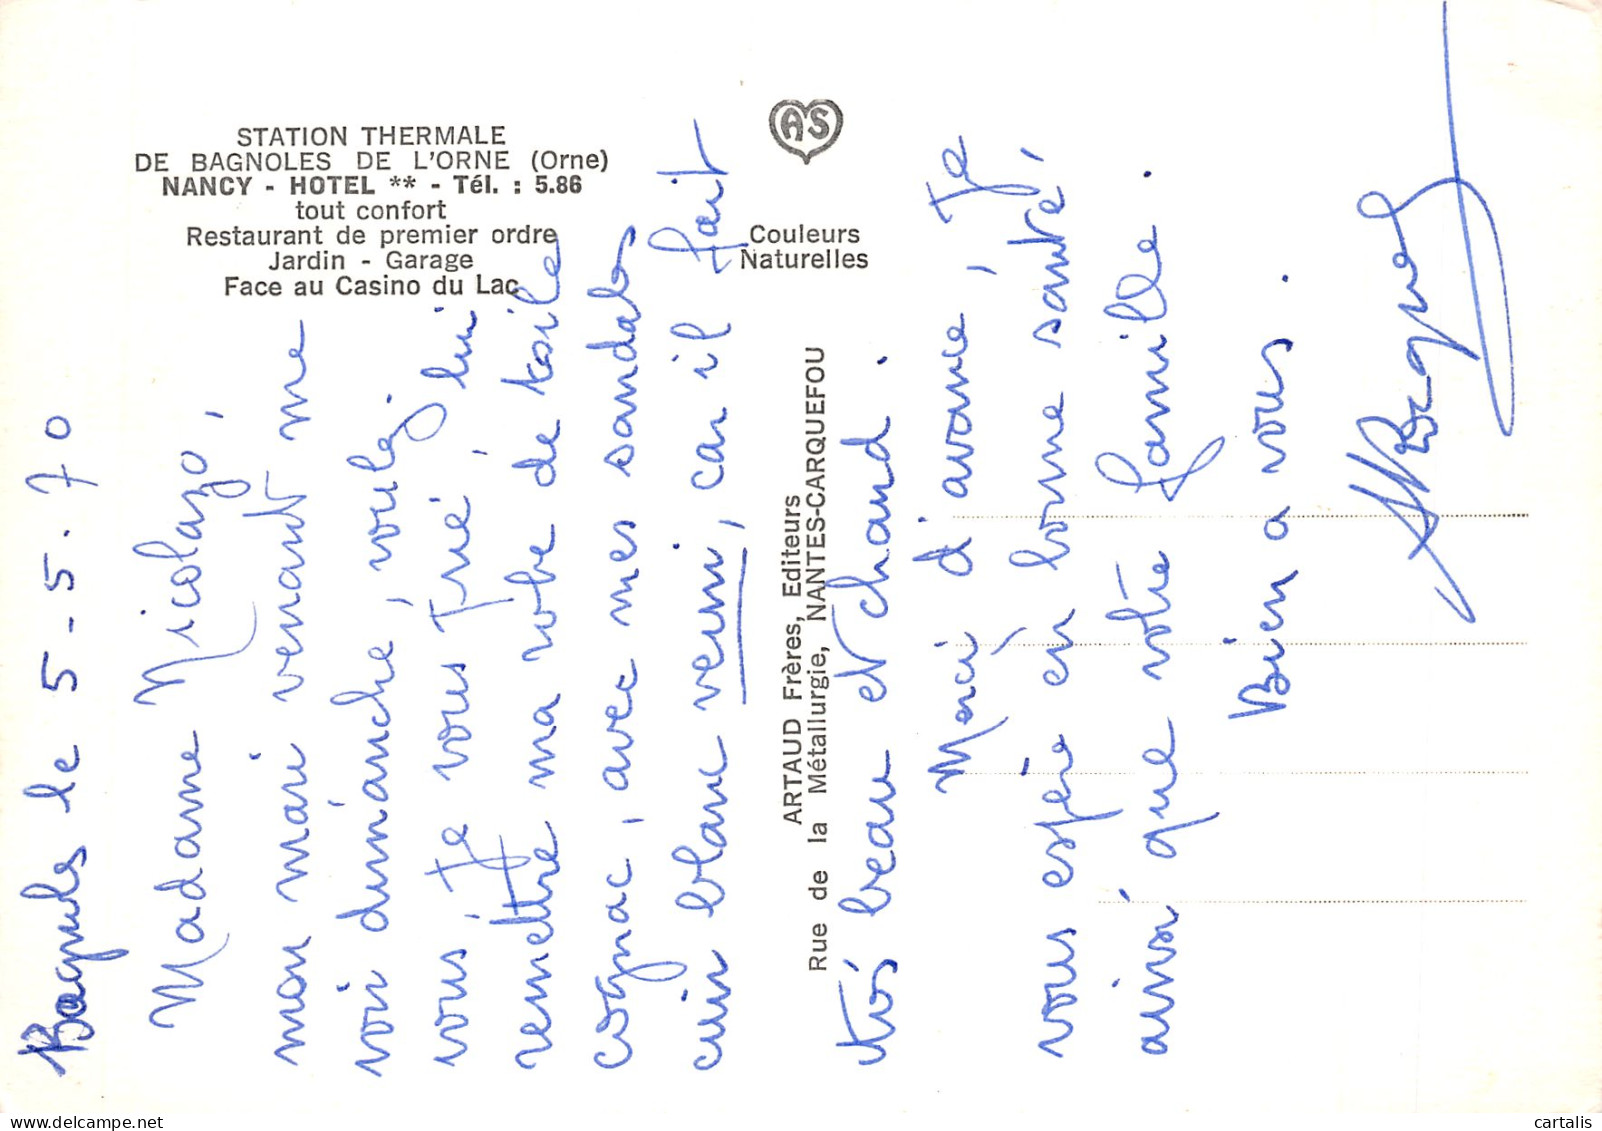 STATION THERMALE
DE BAGNOLES DE L'ORNE (Orne)
NANCY - HOTEL ** - Tél. : 5.86
tout confort
Restaurant de premier ordre
Jardin - Garage
Face au Casino du Lac
AS
Couleurs
Naturelles
ARTAUD Frères, Editeurs
Rue de la Métallurgie, NANTES-CARQUEFOU
Bagnoles le 5-5.70
Madame Nicolazo,
mon mari venant me
voir dimanche, voulez.
vous, je vous prie, lui
remettre ma robe de toile
cognac, avec mes sandales
cuir blanc verni, car il fait
très beau et chaud.
Merci d'avance, Je
vous espère en bonne santé,
ainsi que votre famille.
Bien a vous.
cartalis